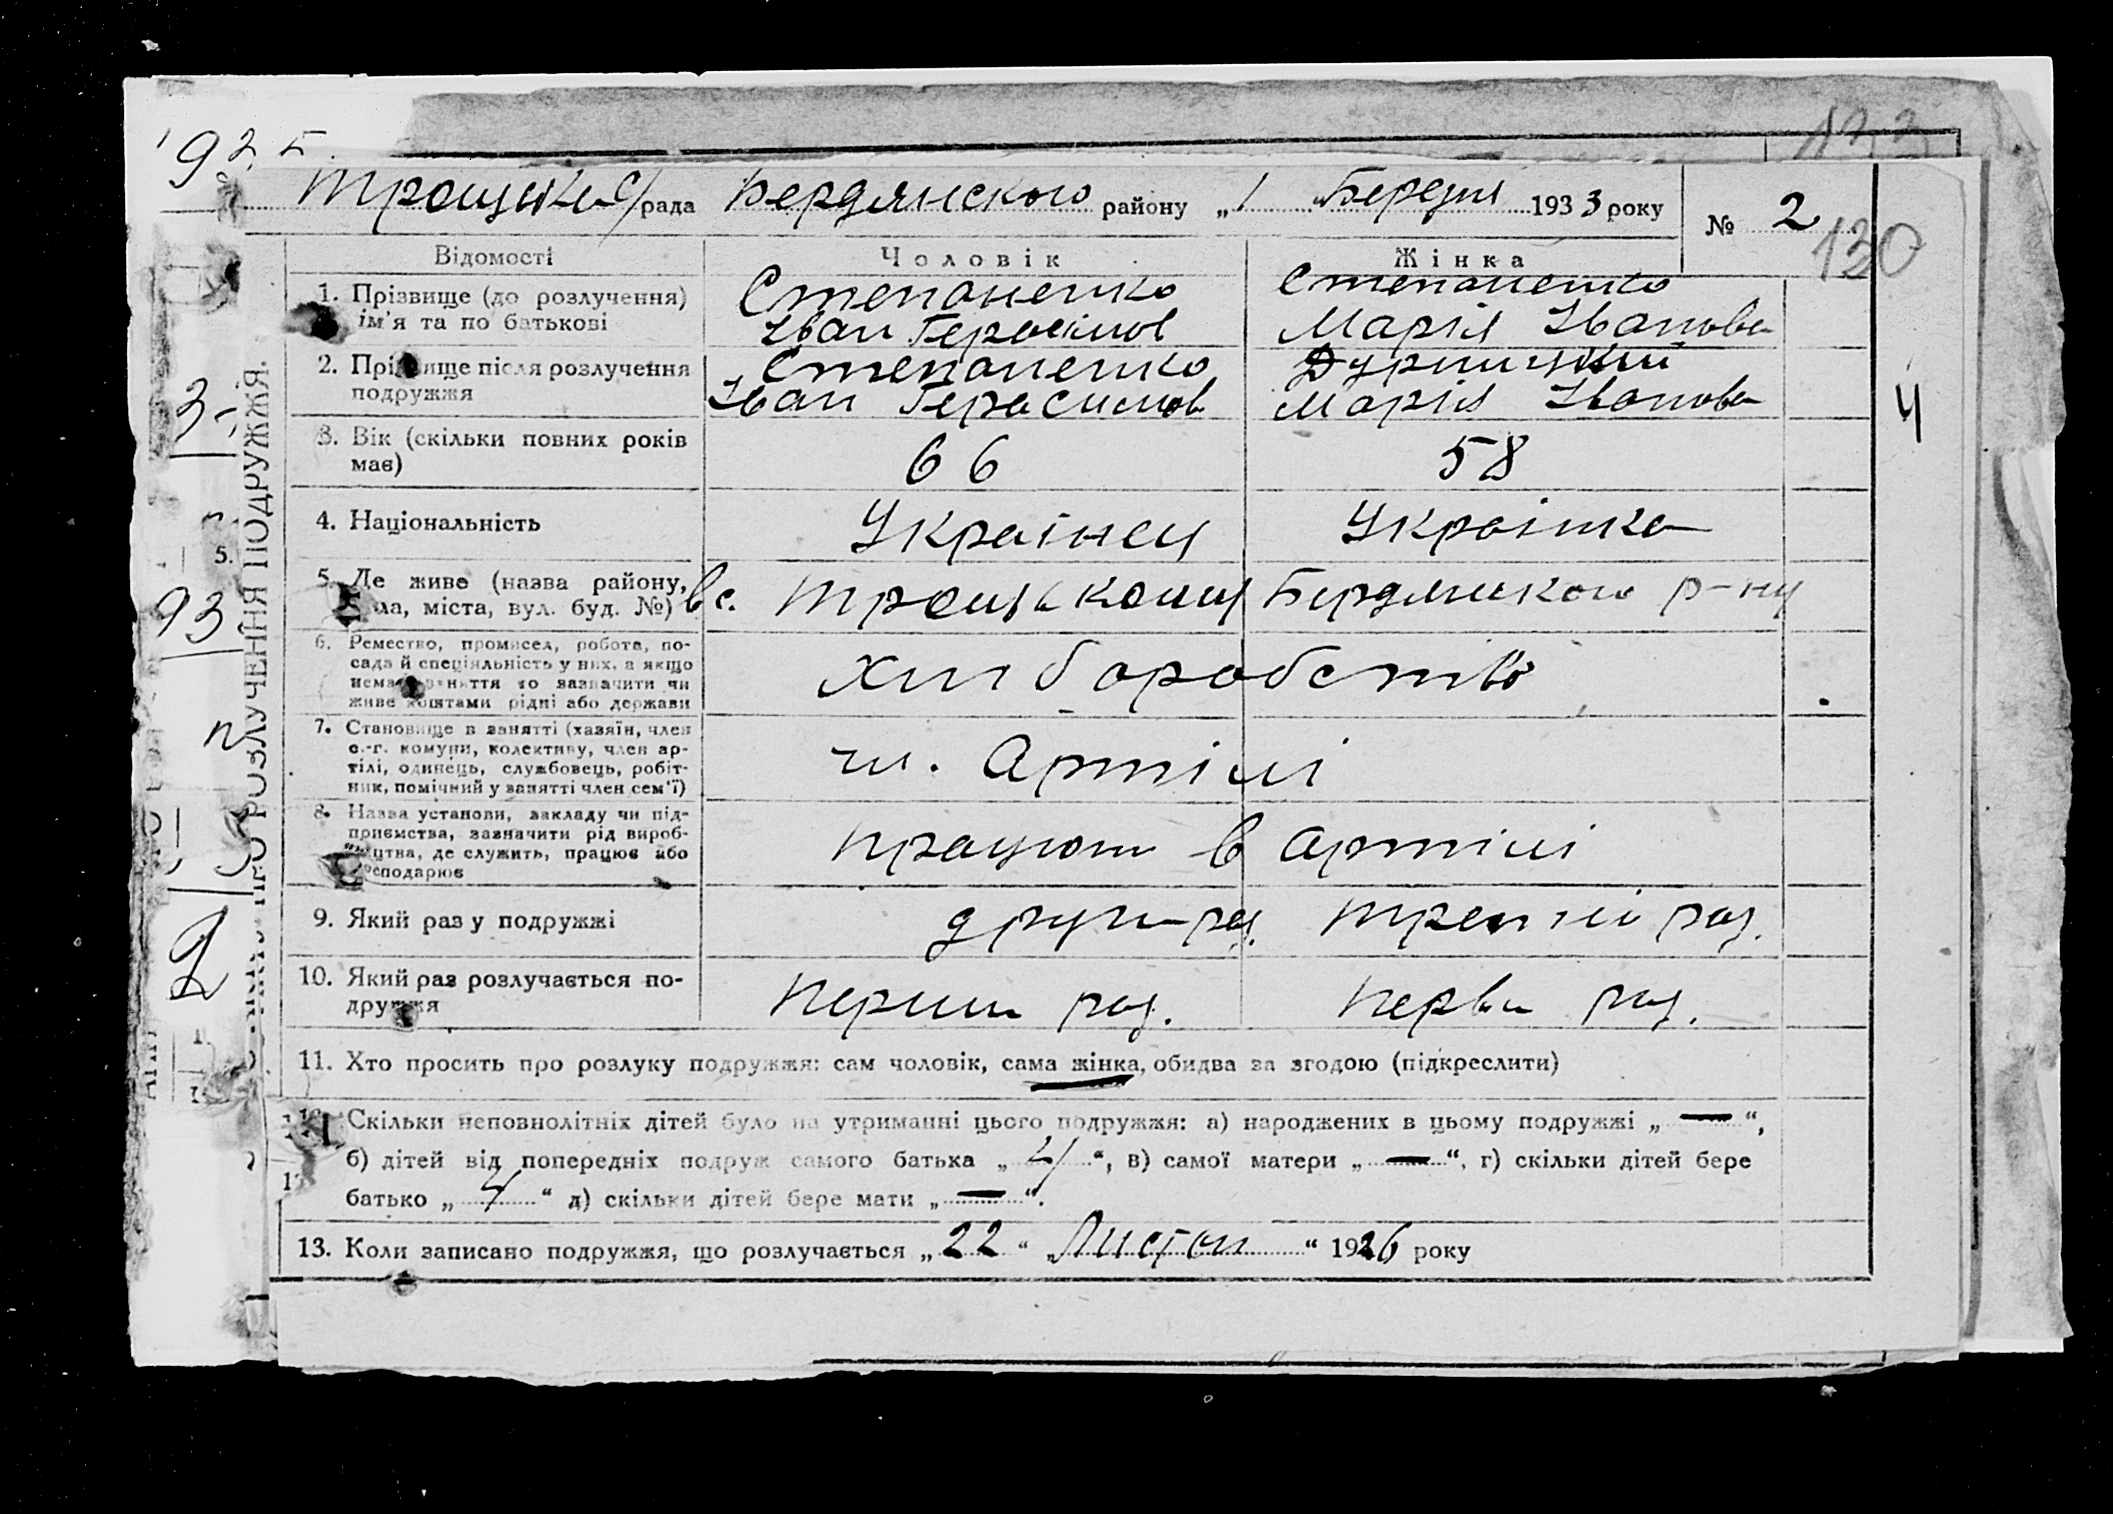 1925
Троцька с/рада Бердянского району „1 Березня 1933 року № 2
130
Відомості Чоловік Жінка
1. Прізвище (до розлучення) ім'я та по батькові
Степаненко
Іван Герасімов
Степаненко
Марія Іванова
2. Прізвище після розлучення подружжя
Степаненко
Іван Герасимов
Марія Іванова
3. Вік (скільки повних років має) 66 58
4. Національність Українец Українка
5. Де живе (назва району, села, міста, вул. буд. №) в с. Троцькому Бердянского р-ну
6. Ремество, промисел, робота, по-
сада й спеціяльність у них, а якщо
нема заняття то зазначити чи
живе коштами рідні або держави
Хліборобство
7. Становище в занятті (хазяїн, член
с.-г. комуни, колективу, член ар-
тілі, одинець, службовець, робіт-
ник, помічний у занятті член сем'ї)
чл. Артілі
8. Назва установи, закладу чи під-
приємства, зазначити рід вироб-
ництва, де служить, працює або
господарює
працюють в артілі
9. Який раз у подружжі други раз. третій раз.
10. Який раз розлучається по-
дружжя
перши раз. перви раз.
11. Хто просить про розлуку подружжя: сам чоловік, сама жінка, обидва за згодою (підкреслити)
12. Скільки неповнолітніх дітей було на утриманні цього подружжя: а) народжених в цьому подружжі „ — “,
б) дітей від попередніх подруж самого батька „ 4 “, в) самої матери „ — “, г) скільки дітей бере
батько „ 4 “ д) скільки дітей бере мати „ — “.
13. Коли записано подружжя, що розлучається „ 22 “ „ Листоп “ 1926 року
РОЗЛУЧЕННЯ ПОДРУЖЖЯ.
5.
93
2
Ч